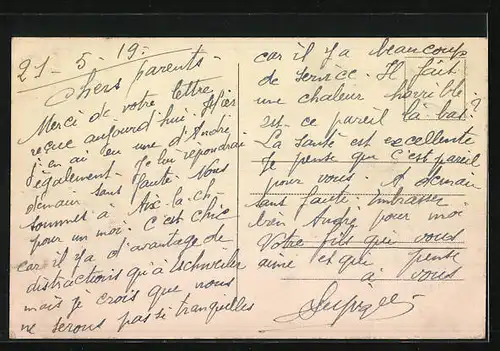 21-5-19.
Chers parents.
Merci de votre lettre
reçue aujourd'hui. Hier
j'en ai eu une d'André
également. Je lui répondrai
demain sans faute. Nous
sommes à Aix-la-Ch.
pour un moi. C'est chic
car il y a d'avantage de
distractions qu'à Eschweiler
mais je crois que nous
ne serons pas si tranquilles
car il y a beaucoup
de service. Il fait
une chaleur horrible
est ce pareil là bas?
La santé est excellente
Je pense que c'est pareil
pour vous. A demain
sans faute. Embrasser
bien André pour moi
Votre fils qui vous
aime et qui pense
à vous